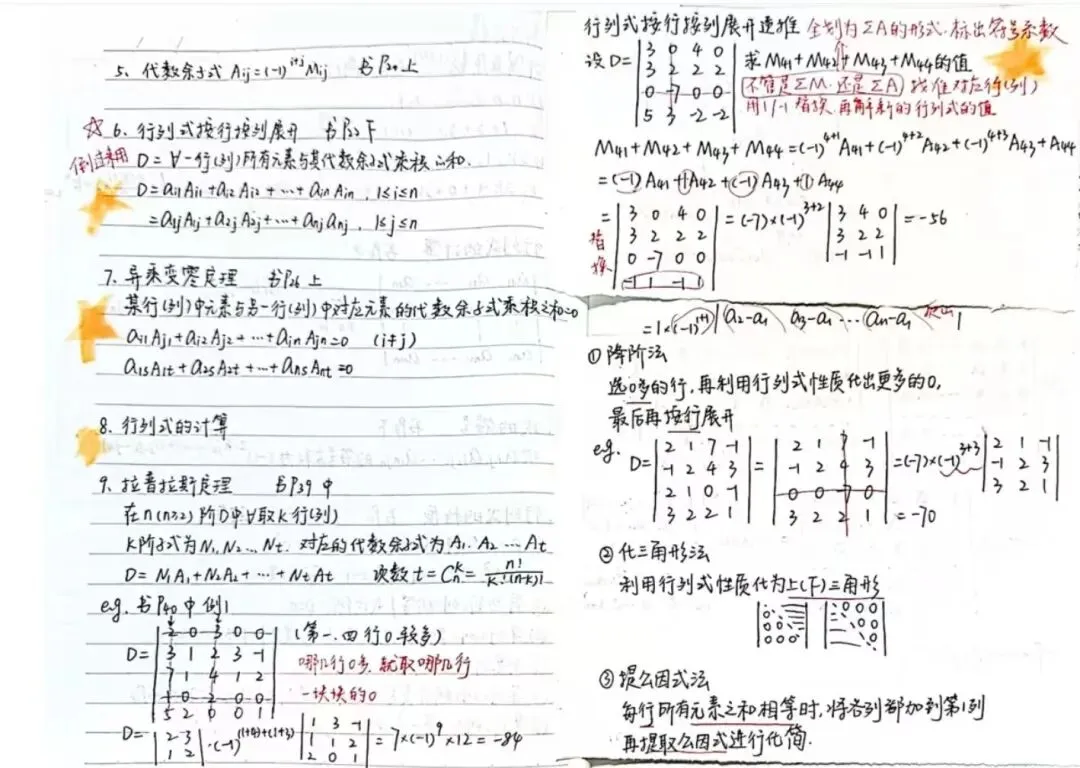 5、代数余子式 Aij=(-1)^{i+j}Mij 书P24上
☆6、行列式按行按列展开 书P27下
倒过来用
D=∀一行(列)所有元素与其代数余子式乘积之和.
D=ai1Ai1+ai2Ai2+…+ainAin, 1≤i≤n
=a1jA1j+a2jA2j+…+anjanj, 1≤j≤n
7、异乘变零定理 书P26上
某行(列)中元素与另一行(列)中对应元素的代数余子式乘积之和=0
ai1Aj1+ai2Aj2+…+ainAjn=0 (i≠j)
a1sA1t+a2sA2t+…+ansAnt=0
8、行列式的计算
9、拉普拉斯定理 书P39中
在n(n≥2)阶D中∀取K行(列)
K阶子式为N1,N2…Nt. 对应的代数余子式为A1·A2…At
D=N1A1+N2A2+…+NtAt 次数t=C_n^k=n!/K!(n-k)!
eg. 书P40中例1
D=
2 0 3 0 0
3 1 2 3 -1
7 1 4 1 2
1 0 2 0 0
5 2 0 0 1
(第一、四行0较多)
哪几行0多,就取哪几行
一块块的0
D=|2 3; 1 2|·(-1)^{(1+4)+(1+3)}|1 3 -1; 1 1 2; 2 0 1|=7×(-1)^9×12=-84
行列式按行按列展开逆推 全划为ΣA的形式.标出符号系数
设D=
3 0 4 0
2 2 2
0 -7 0 0
5 3 -2 -2
求M41+M42+M43+M44的值
不管是ΣM还是ΣA 找准对应行(列)
用1/-1替换.再解新的行列式的值
M41+M42+M43+M44=(-1)^{4+1}A41+(-1)^{4+2}A42+(-1)^{4+3}A43+A44
=(-1)A41+1A42+(-1)A43+1A44
替换
=|3 0 4 0; 3 2 2 2; 0 -7 0 0; -1 1 -1 1|=(-7)×(-1)^{3+2}|3 4 0; 3 2 2; -1 -1 1|=-56
=1×(-1)^{1+1}|a2-a1 a3-a1 … an-a1
①降阶法
选0多的行,再利用行列式性质化出更多的0,
最后再按行展开
eg. D=|2 1 7 -1; -1 2 4 3; 2 1 0 -1; 3 2 2 1|=|2 1 7 -1; -1 2 4 3; 0 0 -7 0; 3 2 2 1|=(-7)×(-1)^{3+3}|2 1 -1; -1 2 3; 3 2 1|
=-70
②化三角形法
利用行列式性质化为上(下)三角形
③提公因式法
每行所有元素之和相等时,将各列都加到第1列
再提取公因式进行化简.